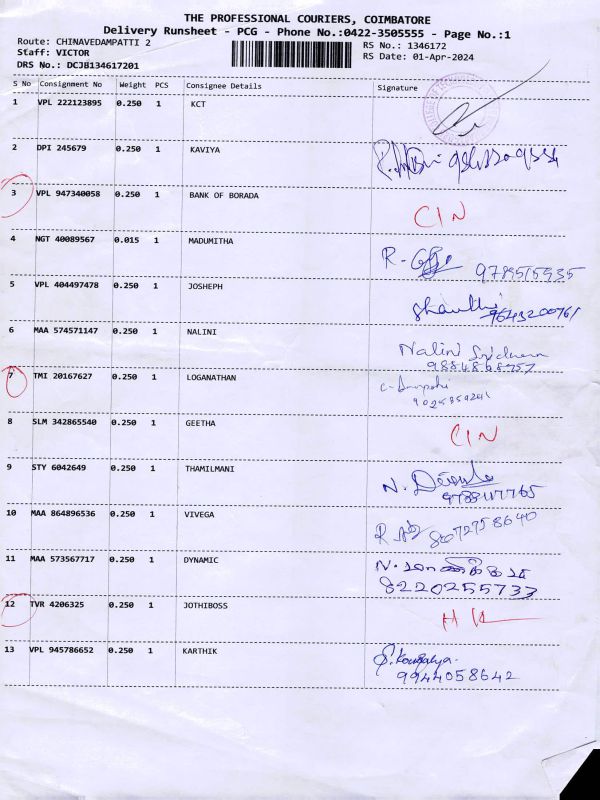 THE PROFESSIONAL COURIERS, COIMBATORE
Delivery Runsheet - PCG - Phone No.:0422-3505555 - Page No.:1
Route: CHINAVEDAMPATTI 2
Staff: VICTOR
DRS No.: DCJB134617201
RS No.: 1346172
RS Date: 01-Apr-2024
S No Consignment No Weight PCS Consignee Details Signature
1 VPL 222123895 0.250 1 KCT
2 DPI 245679 0.250 1 KAVIYA
3 VPL 947340058 0.250 1 BANK OF BORADA CIN
4 NGT 40089567 0.015 1 MADUMITHA R-
5 VPL 404497478 0.250 1 JOSHEPH Shanthi
6 MAA 574571147 0.250 1 NALINI Nalini
7 TMI 20167627 0.250 1 LOGANATHAN
8 SLM 342865540 0.250 1 GEETHA CIN
9 STY 6042649 0.250 1 THAMILMANI N.
10 MAA 864896536 0.250 1 VIVEGA R
8072758640
11 MAA 573567717 0.250 1 DYNAMIC N.
8220255733
12 TVR 4206325 0.250 1 JOTHIBOSS
13 VPL 945786652 0.250 1 KARTHIK
9944058642